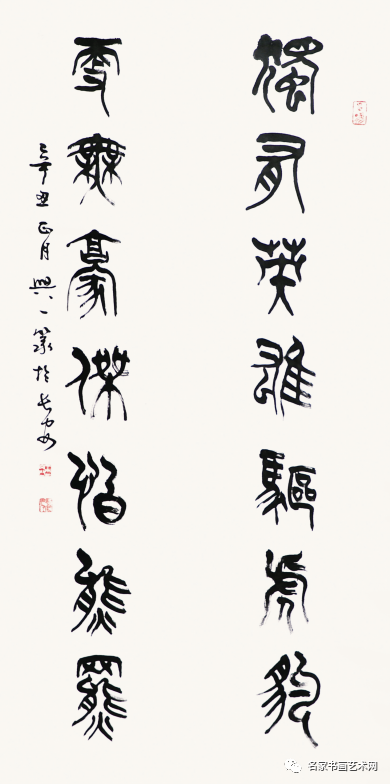 獨有英雄驅虎豹
更無豪傑怕熊羆
辛丑正月興一篆於長安
名家书画艺术网